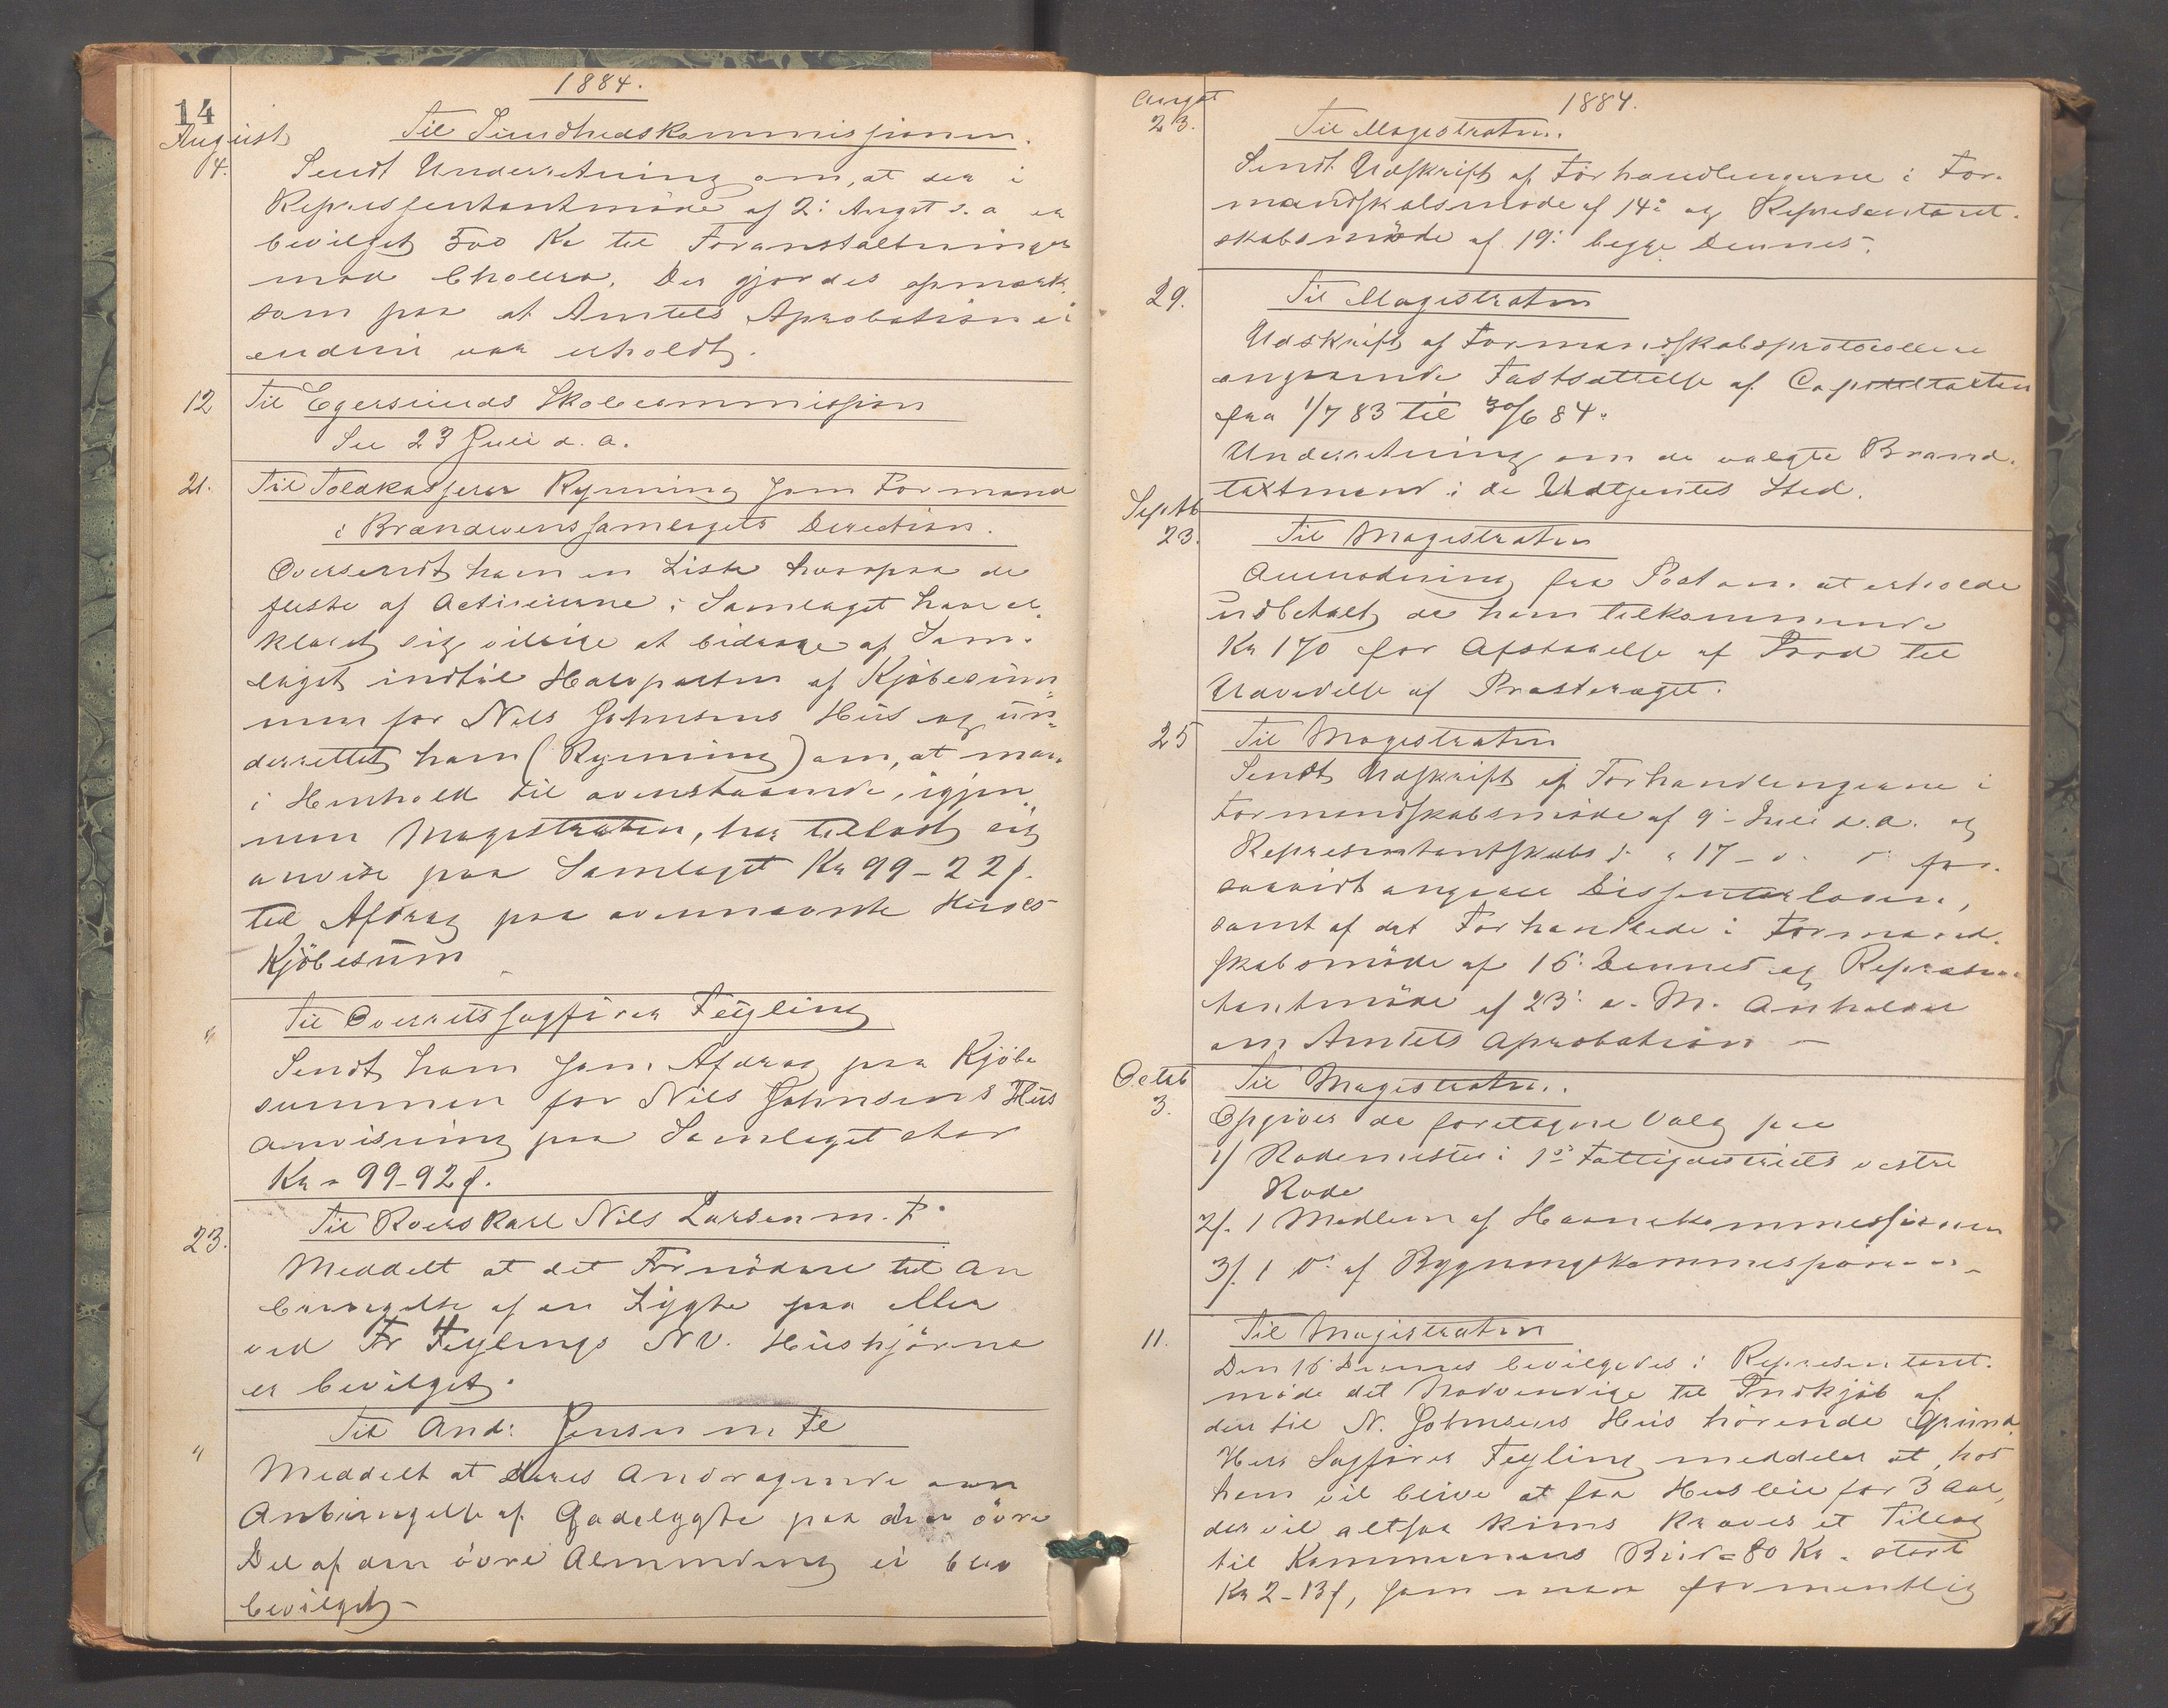 14
1884.
August
4.
Til Sundhedskommissionen.
Sendt Underretning om, at der i
Repræsentantmöde af 2: Augst d. a er
bevilget 500 Kr til Foranstaltninger
mod Cholera. Der gjordes opmærk-
som paa at Amtets Aprobation ei
endnu var erholdt.
12
Til Egersunds Skolecommission
Se 23 Juli d. a.
21.
Til Toldkasserer Rynning som Formand
i Brændevinssamlagets Direction.
Oversendt ham en Liste hvorpaa de
fleste af Actieierne i Samlaget have er-
klæret sig villige at bidrage af Sam-
laget indtil Halvparten af Kjøbesum-
men for Nils Johnsens Hus og un-
derrettet ham (Rynning) om, at man
i Henhold til ovenstaaende, igjen-
nem Magistraten, har tilladt sig
anvise paa Samlaget Kr 99-22 f.
til Afdrag paa ovennævnte Huses
Kjöbesum
"
Til Overretssagförer Feyling
Sendt ham som Afdrag paa Kjöbe
summen for Nils Johnsens Hus
Anvisning paa Samlaget stor
Kr = 99-92 f.
23.
Til Roerskarl Nils Larsen m. F.
Meddelt at det Fornödne til An
bringelse af en Lygte paa eller
ved Fr Feylings NV. Hushjörne
er bevilget.
"
Til And: Jensen m Fl
Meddelt at deres Andragende om
Anbringelse af Gadelygte paa den övre
Del af den övre Almending ei blev
bevilget-
1884.
Augst
23.
Til Magistraten.
Sendt Udskrift af Forhandlingerne i For-
mandskabsmöde af 14: og Repræsentant-
skabsmöde af 19: begge Dennes.
29.
Til Magistraten
Udskrift af Formandskabsprotocollen
angaaende Fastsættelse af Capiteltaxten
fra 1/7 83 til 30/6 84.
Underretning om de valgte Brand-
taxtmænd i de Udtjentes Sted.
Septb
23.
Til Magistraten
Anmodning fra Provsten at erholde
udbetalt de ham tilkommende
Kr 170 for Afstaaelse af Jord til
Udvidelse af
25
Til Magistraten
Sendt Udskrift af Forhandlingerne i
Formandskabsmöde af 9- Juli d.a. og
Repræsentantskabs D: " 17 - d. D: for-
saavidt angaar Dissenterloven,
samt af det Forhandlede i Formand-
skabsmöde af 16: Dennes og Repræsen-
tantmöde af 23: d. M. Anholder
om Amtets Aprobation -
Octob
3.
Til Magistraten.
Opgiver de foretagne Valg paa
1/ Rodemester i 1ste Fattigdistricts vestre
Rode
2/. 1 Medlem af Havnekommissionen
3/. 1 D: af Bygningskommissionen -
11.
Til Magistraten
Den 16 Dennes bevilgedes i Repræsentant-
møde det Nødvendige til Indkjöb af
den til N. Johnsens Hus hörende Grund.
Herr Sagförer Feyling meddeler at, hos
ham vil blive at faa Husleie for 3 Aar,
der vil altsaa kuns kræves et Tillæg
til Kommunens Bud = 80 Kr. stort
Kr 2-13 f, som man formentlig